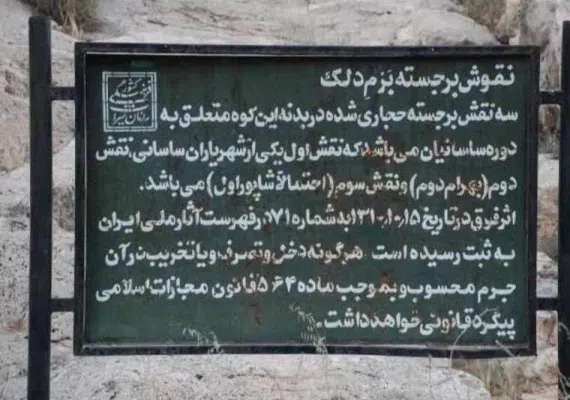 نقوش برجسته بَزم دلک
سه نقش برجسته حجاری شده در بدنه این کوه متعلق به
دوره ساسانیان می باشد که نقش اول یکی از شهریاران ساسانی، نقش
دوم (بهرام دوم) و نقش سوم (احتمالاً شاپور اول) می باشد.
اثر فوق در تاریخ ۱۳۱۰،۱۰،۱۵ به شماره ۷۱ در فهرست آثار ملی ایران
به ثبت رسیده است هرگونه دخل و تصرف و یا تخریب در آن
جرم محسوب و بموجب ماده ۵۶۴ قانون مجازات اسلامی
پیگرد قانونی خواهد داشت.